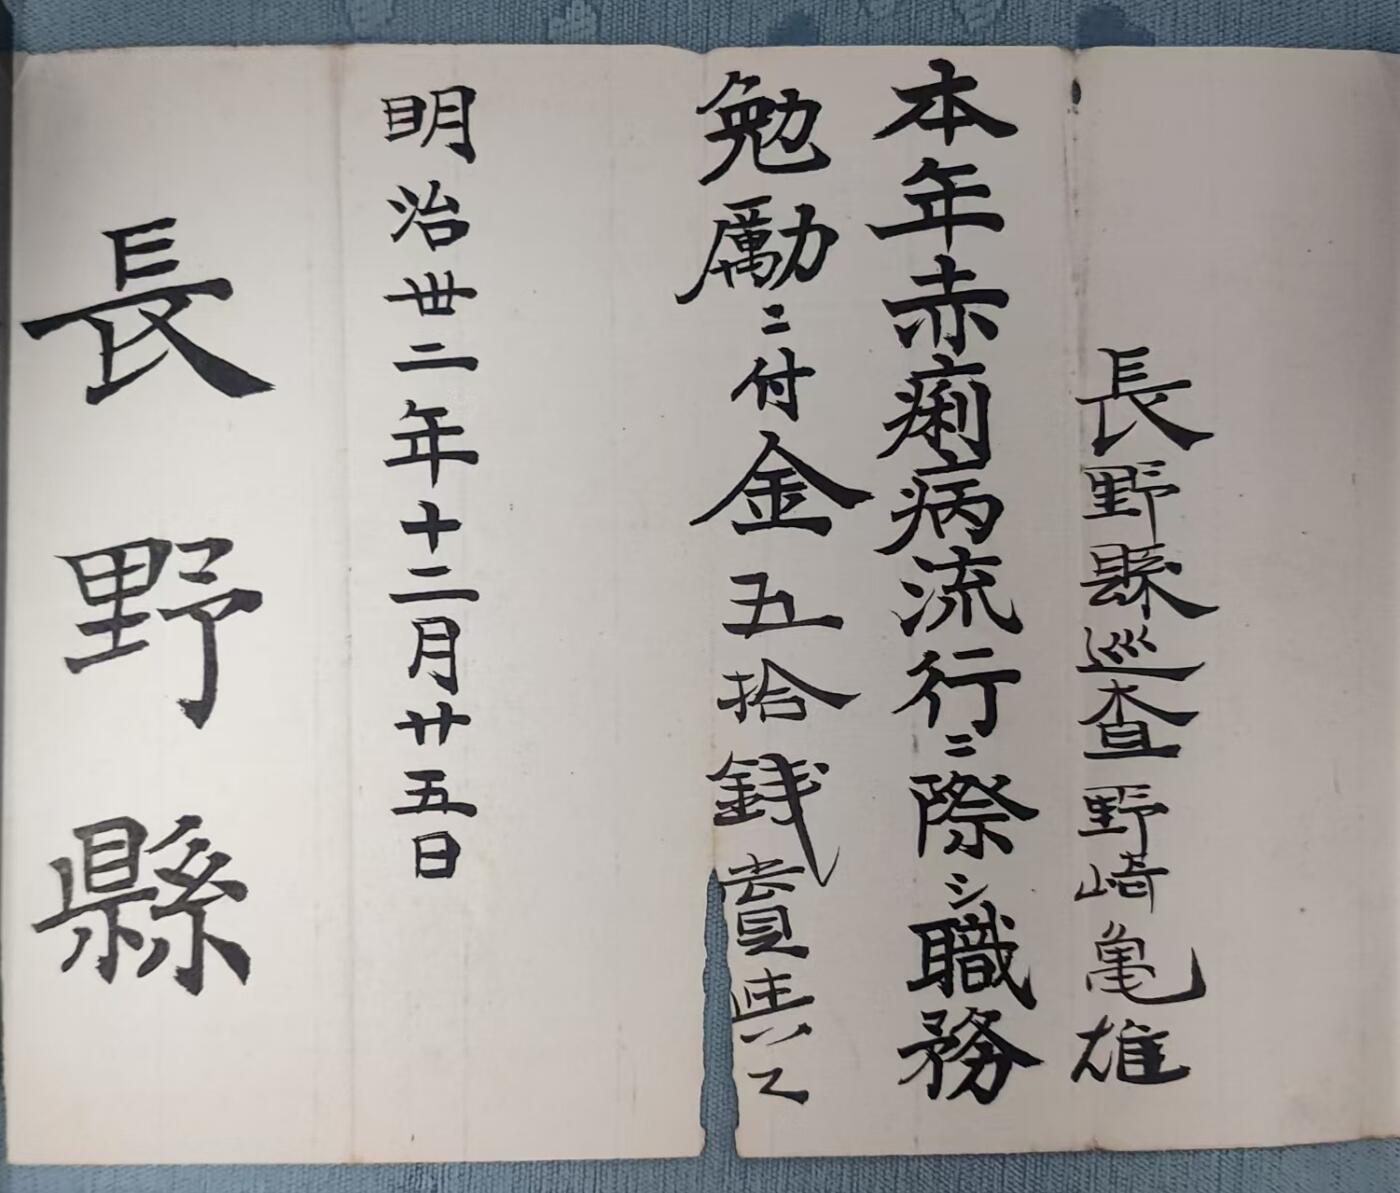 長野縣巡査野崎亀雄
本年赤痢病流行ニ際シ職務
勉勵ニ付金五拾錢賞與ス
明治丗二年十二月廿五日
長野縣